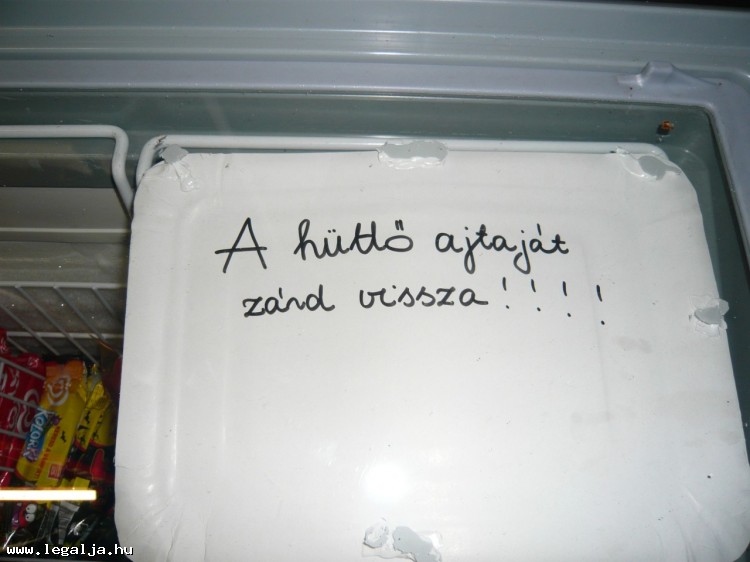 A hüttő ajtaját
zárd vissza!!!!
www.legalja.hu